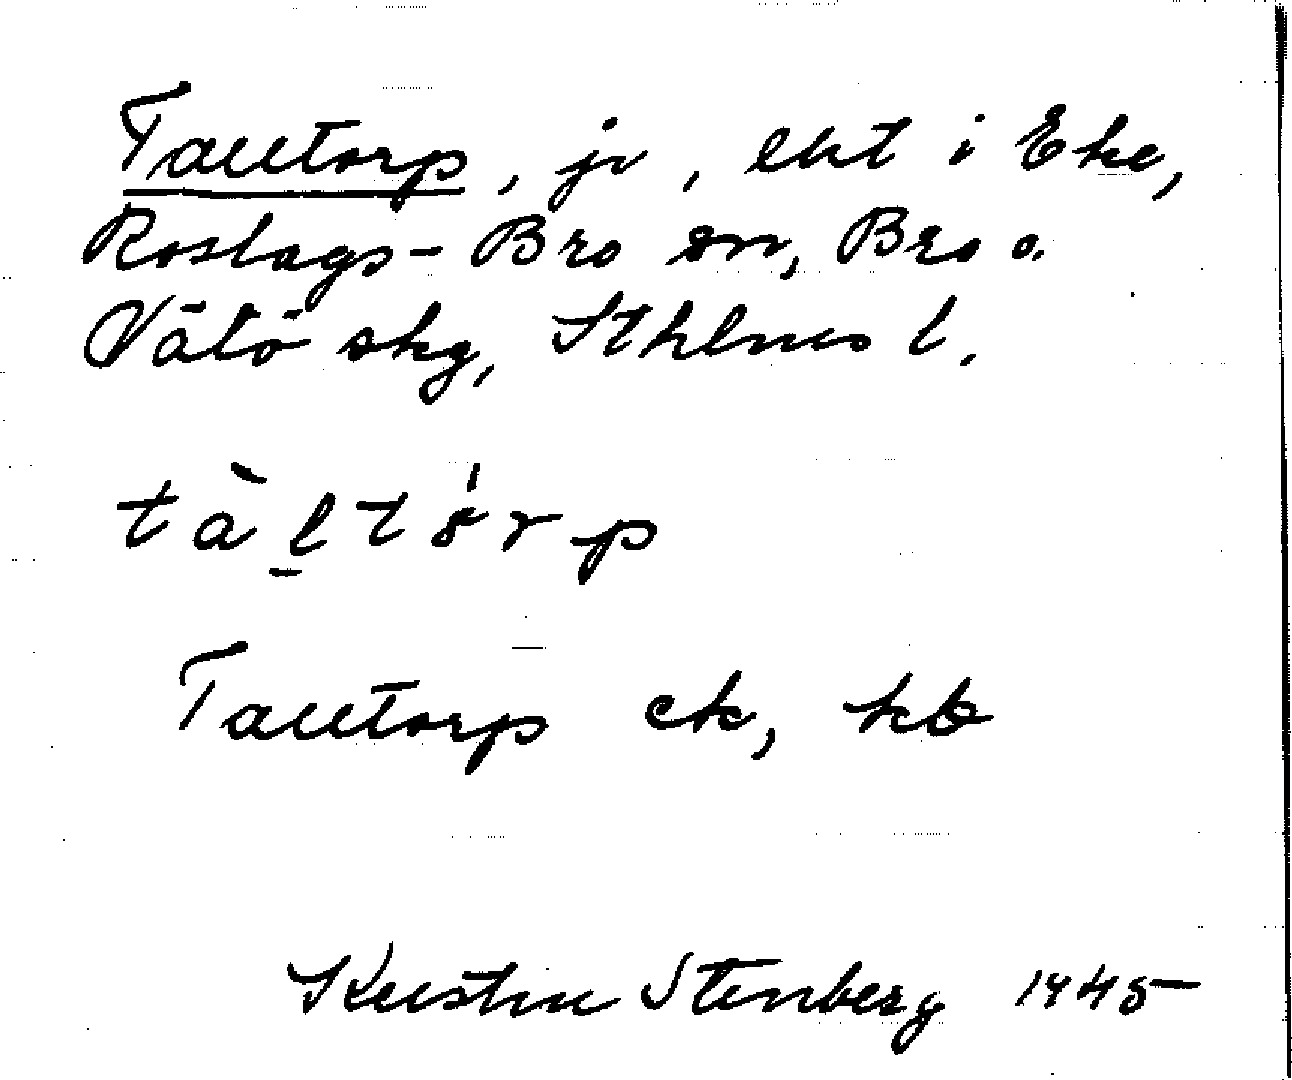 Talltorp, jv, eht i Eke,
Roslags-Bro sn, Bro o.
Vätö skg, Sthlms l.
tàl̠tórp
Talltorp ek, kb
Kerstin Stenberg 1945